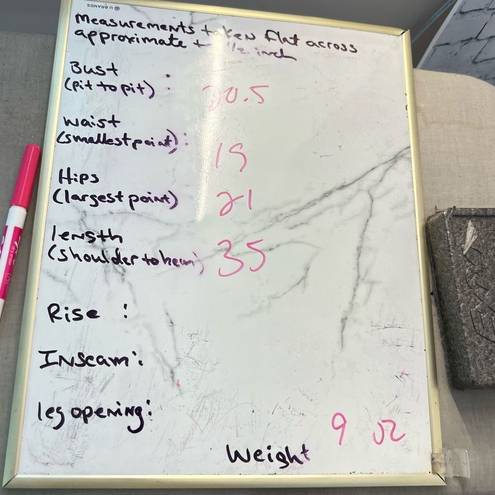 Measurements taken flat across
approximate + 1/2 inch
Bust
(pit to pit) : 20.5
waist
(smallest point) : 19
Hips
(largest point) 21
length
(shoulder to hem) 35
Rise :
Inseam :
leg opening :
Weight 9 oz